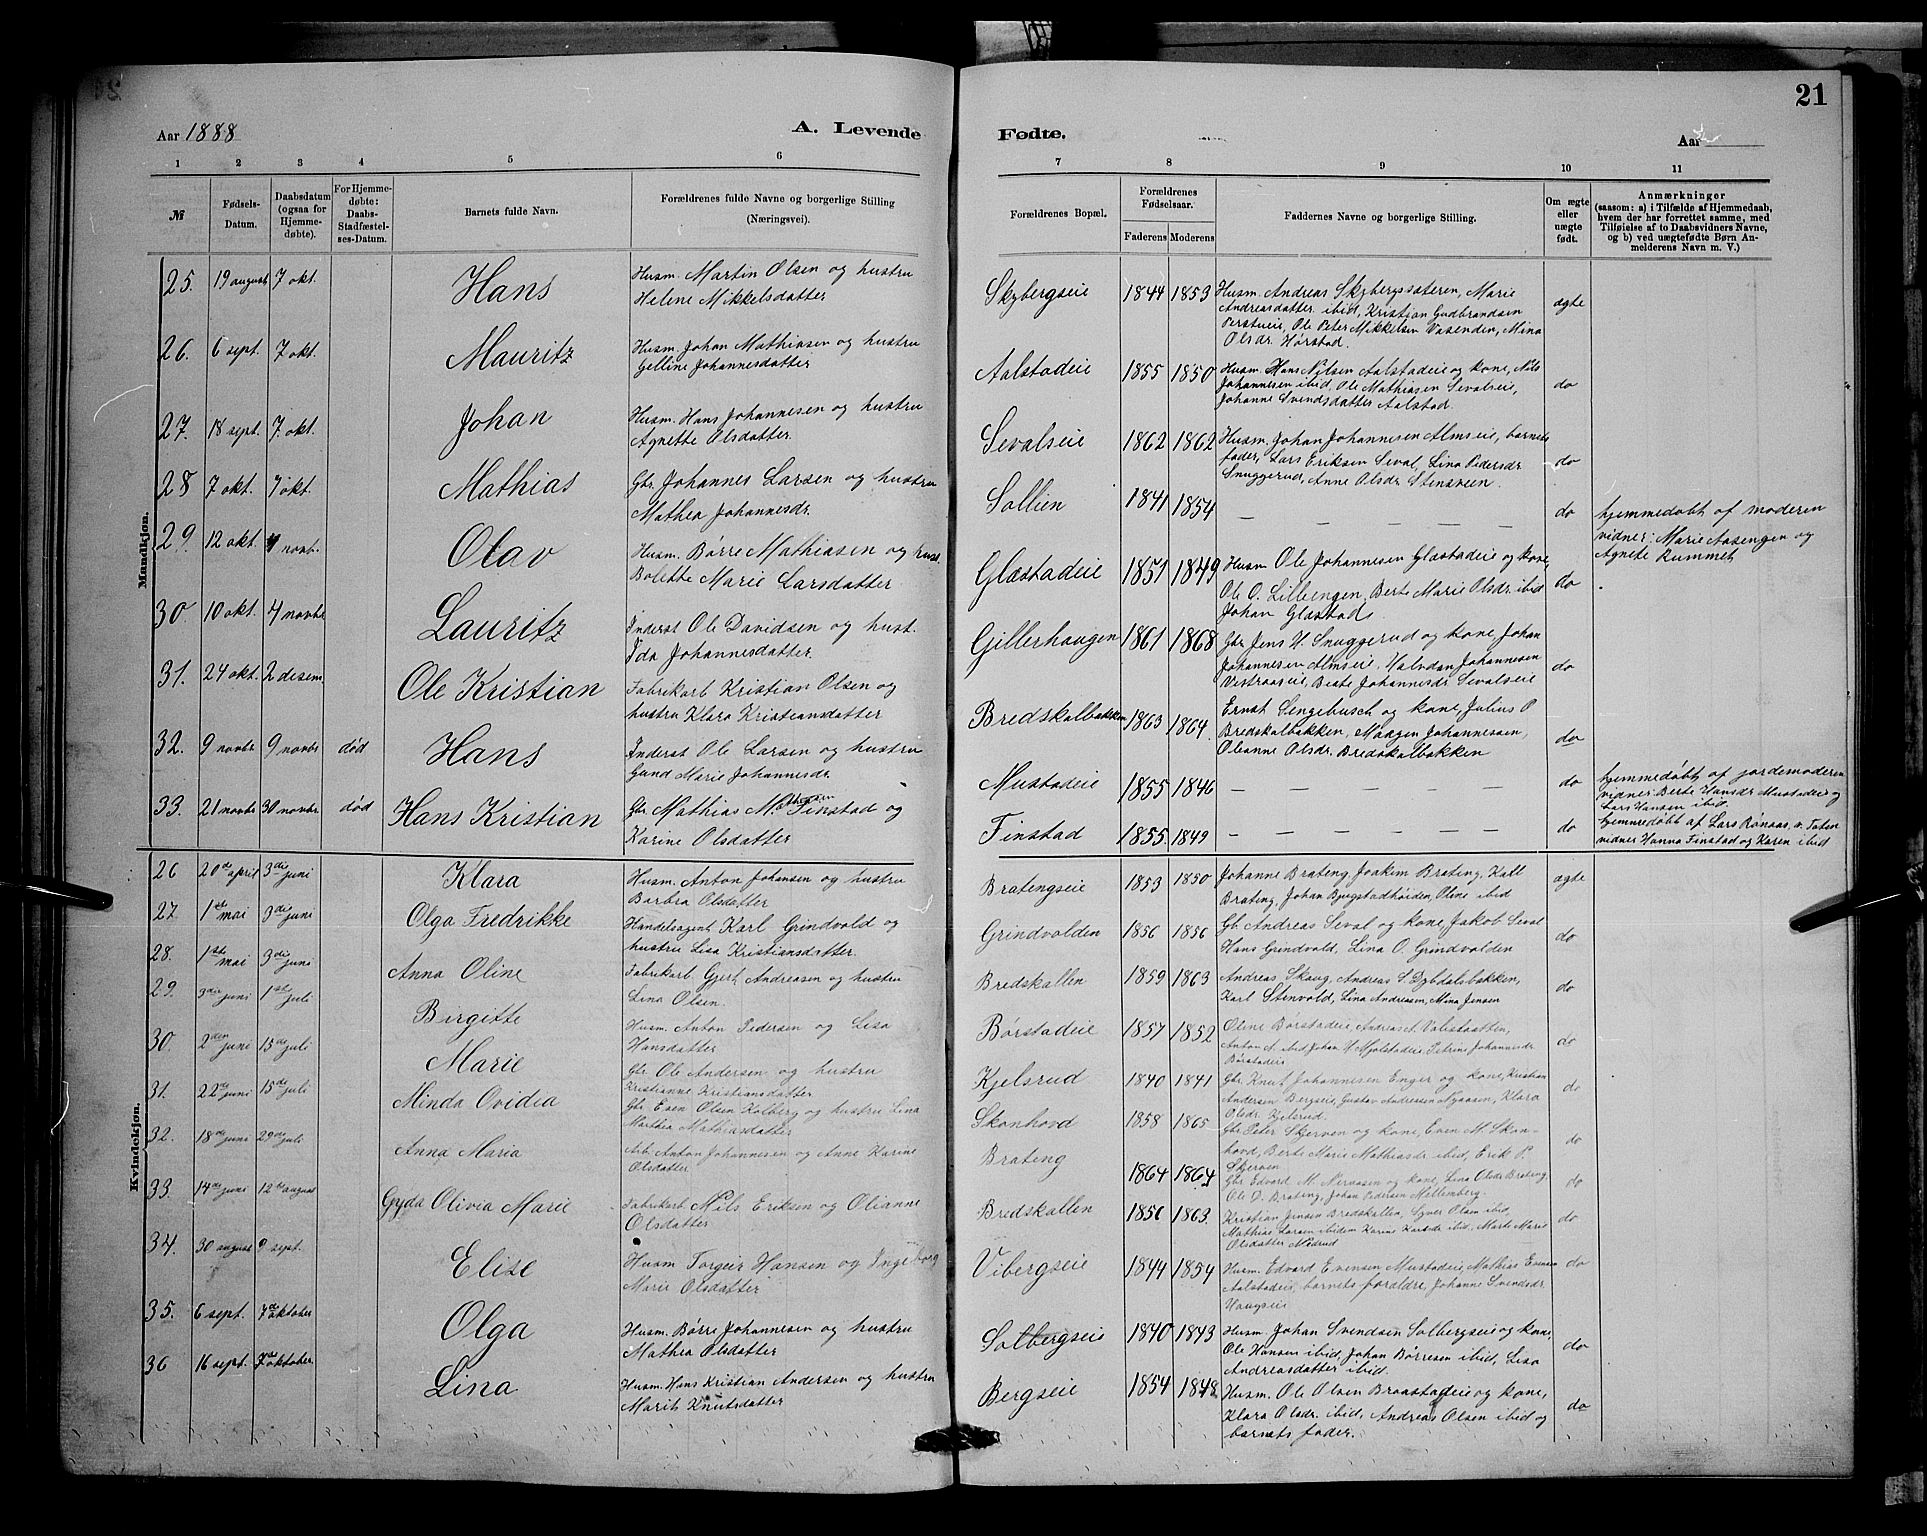 21
Aar 1888
A. Levende
Fødte.
Aar
1 2 3 4 5 6
7 8 9 10 11
№
Fødsels-Datum.
Daabsdatum (ogsaa for Hjemme-døbte).
For Hjemme-døbte: Daabs-Stadfæstel-ses-Datum.
Barnets fulde Navn.
Forældrenes fulde Navne og borgerlige Stilling (Næringsvei).
Forældrenes Bopæl.
Forældrenes Fødselsaar.
Faderens Moderens
Faddernes Navne og borgerlige Stilling.
Om ægte eller uægte født.
Anmærkninger
(saasom: a) i Tilfælde af Hjemmedaab, hvem der har forrettet samme, med Tilføielse af to Daabsvidners Navne, og b) ved uægtefødte Børn An-melderens Navn m. V.)
Mandkjøn.
25. 19 august 7 okt. Hans
Husm. Martin Olsen og hustru
Helene Mikkelsdatter
Skybergseie 1844 1853
Husm. Andreas Skybergssæteren, Marie
Andreasdatter ibid, Kristian Gudbrandsen
Perstueie, Ole Peter Mikkelsen Vasenden, Mina
Olsdr. Hørstad.
ægte
26. 6 sept. 7 okt. Mauritz
Husm. Johan Mathiasen og hustru
Gelline Johannesdatter
Aalstadeie 1855 1850
Husm. Hans Nilsen Aalstadeie og kone, Nils
Johannesen ibid, Ole Mathiasen Sevalseie,
Johanne Svendsdatter Aalstad.
do
27. 18 sept. 7. okt. Johan
Husm. Hans Johannesen og hustru
Agnette Olsdatter.
Sevalseie 1862 1862
Husm. Johan Johannesen Almseie, barnets
fader, Lars Eriksen Seval, Lina Pedersdr
Snuggerud, Anne Olsdr Stensveen.
do
28 7 okt. 7 okt. Mathias
Gbr. Johannes Larsen og hustru
Mathea Johannesdr.
Sollien 1841 1854
— — — — — —
do
hjemmedøbt af moderen
vidner: Marie Aasengen og
Agnete Rummet
29 12 okt. 4 novb. Olav
Husm. Børre Mathiasen og hust.
Bolette Marie Larsdatter
Glæstadeie 1851 1849
Husm Ole Johannesen Glæstadeie og kone,
Ole O. Lillsengen, Berte Marie Olsdr. ibid
Johan Glæstad.
do
30 10 okt. 4 novbr Lauritz
Inderst Ole Davidsen og hust.
Ida Johannesdatter.
Gillerhaugen 1861 1868
Gbr Jens H. Snuggerud og kone, Johan
Johannesen Almseie, Halvdan Johannesen
Vestraaseie, Beate Johannesdr Sevalseie
do
31. 24 okt. 2 desem. Ole Kristian
Fabrikarb Kristian Olsen og
hustru Klara Kristiansdatter
Bredskalbakken 1863 1864.
Ernst Sengebusch og kone, Julius P
Bredskalbakken, Maagen Johannesen,
Oleanne Olsdr. Bredskalbakken
do
32. 9 novbr 9 novbr død Hans
Inderst Ole Larsen og hustru
Gund Marie Johannesdr.
Mustadeie 1855 1846
— — — — — —
do
hjemmedøbt af jordemoderen
vidner: Berte Hansdr Mustadeie og
Lars Hansen ibid.
33. 21 novbr 30 novbr død Hans Kristian
Gbr Mathias Mathiasen Finstad og
Karine Olsdatter
Finstad 1855. 1849
— — — — — —
do
hjemmedøbt af Lars Rønaas, v. Toten
vidner Hanna Finstad og Karen ibid
Kvindekjøn.
26 20de april 3die juni Klara
Husm. Anton Johansen og hustru
Barbra Olsdatter
Bratengseie 1853 1850
Johanne Brateng, Joakim Brateng, Kall
Brateng, Johan Bjugstadhøiden, Oline ibid
ægte
27. 1ste mai 3die juni Olga Fredrikke
Handelsagent Karl Grindvold og
hustru Lisa Kristiansdatter.
Grindvolden 1856 1856
Gb Andreas Seval og kone, Jakob Seval
Hans Grindvold, Lina O. Grindvolden
do
28. 1ste mai 3die juni Anna Oline
Fabrikarb. Gjert Andreasen og hustru
Lina Olsen.
Bredskallen 1859 1863
Andreas Skaug, Andreas S. Dybdalsbakken,
Karl Stenvold, Lina Andreasen, Mina Jensen
do
29. 3die juni 1ste juli Birgitte
Husm. Anton Pedersen og Lisa
Hansdatter
Børstadeie 1857 1852
Oline Børstadeie, Andreas A.
Anton A. ibid Johan M Mjølstadeie, Petrine Johannesdr
Børstadeie
do
30. 2den juni 15de juli Marie
Gbr Ole Andersen og hustru
Kristianne Kristiansdatter
Kjelsrud 1840 1841
Gbr. Knut Johannesen Enger og kone, Kristian
Andersen Bergseie, Gustav Andreasen Nyaasen, Klara
Olsdr. Kjelsrud.
do
31. 22de juni 15de juli Minda Ovidia
Gbr. Even Olsen Kolberg og hustru Lina
Marthea Mathiasdatter
Skonhovd 1858 1865
Gbr Peter Skjerven og kone, Even M. Skon-
hovd, Berte Marie Mathiasdr ibid, Erik P.
Skjerven
do
32. 18de juni 29de juli Anna Maria
Arb. Anton Johannesen og Anne Karine
Olsdatter
Brateng 1864 1864
Gbr Edvard M. Nervasen og kone, Lina Olsdr Brateng,
Ole D. Brateng, Johan Pedersen Mellemberg.
do
33. 14de juni 12te august Gyda Olivia Marie
Fabrikarb. Nils Eriksen og Olianne
Olsdatter
Bredskallen 1856 1863.
Kristian Jensen Bredskallen, Syver Olsen ibid,
Mathias Larsen ibidem Karine Karlsdr ibid, Marte Marie
Olsdatter Nedrud
do
34. 30 august 9 sept. Elise
Husm Torgeir Hansen og Ingeborg
Marie Olsdatter
Vibergseie 1844 1854
Husm. Edvard Evensen Mustadeie, Mathias Evensen
Aalstadeie, barnets forældre, Johanne Svendsdr
Haugseie
do
35. 6 sept. 7de oktober Olga
Husm. Børre Johannesen og hustru
Mathea Olsdatter
Solbergseie 1840 1843
Husm. Johan Svendsen Solbergseie og kone,
Ole Hansen ibid, Johan Børresen ibid, Lisa
Andreasdatter ibid.
do
36 16 sept. 7de oktober. Lina
Husm. Hans Kristian Andersen og hustru
Marit Knutsdatter
Bergseie 1854 1848
Husm. Ole Olsen Braastadeie og kone,
Klara Olsdr. ibid, Andreas Olsen ibid og
barnets fader.
do